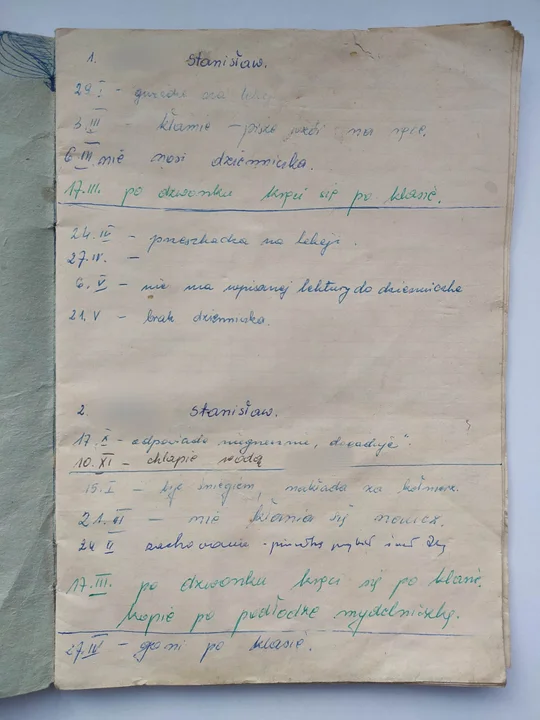 1. Stanisław.
29. I - gwiżdże na lekcji
3. III - kłamie - pisze na ręce.
6 III nie nosi dzienniczka.
17. III. po dzwonku kręci się po klasie.
24. IV - przeszkadza na lekcji.
27. IV. -
6. V - nie ma wpisanej lektury do dzienniczka
21. V - brak dzienniczka.
2. Stanisław.
17. X - odpowiada niegrzecznie,
10. XI - chlapie wodą
15. I - bije śniegiem, nakłada za kołnierz.
21. II - nie kłania się naucz.
24 II zachowanie -
17. III. po dzwonku kręci się po klasie.
kopie po podłodze mydelniczkę.
27. IV - goni po klasie.